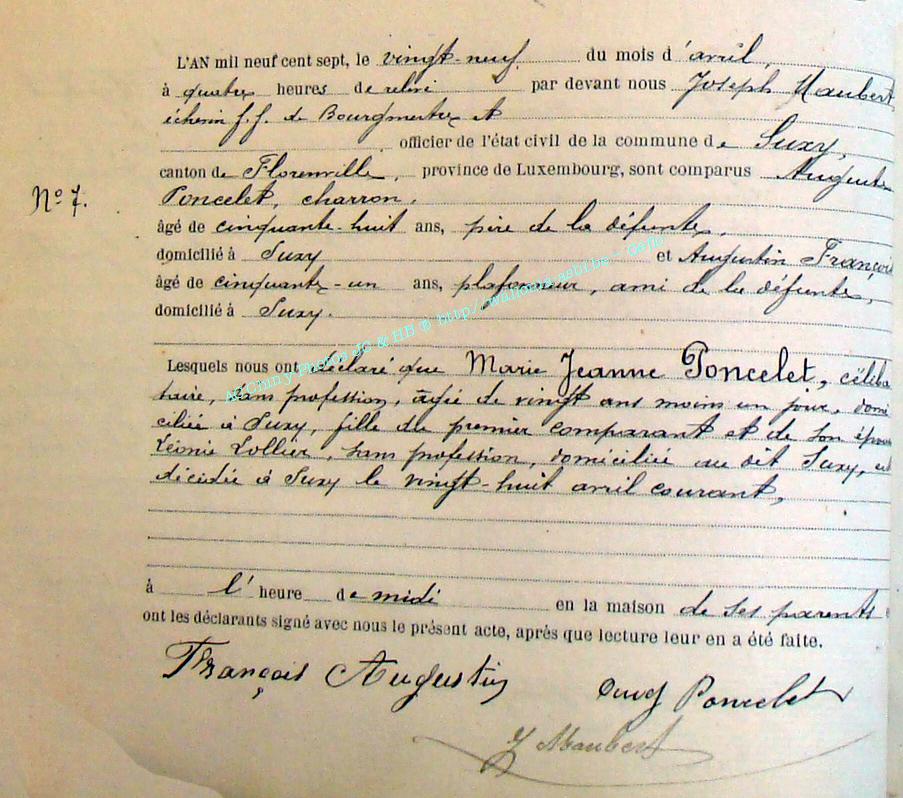 L'AN mil neuf cent sept, le vingt-neuf du mois d'avril,
à quatre heures de relevé par devant nous Joseph Maubert
échevin f.f. de Bourgmestre et
officier de l'état civil de la commune de Suxy,
canton de Florenville, province de Luxembourg, sont comparus Auguste
N° 7.
Poncelet, charron,
âgé de cinquante-huit ans, père de la défunte,
domicilié à Suxy et Augustin François
âgé de cinquante-un ans, plafonneur, ami de la défunte,
domicilié à Suxy.
Lesquels nous ont déclaré que Marie Jeanne Poncelet, céliba
taire, sans profession, âgée de vingt ans moins un jour, domi
ciliée à Suxy, fille du premier comparant et de son épouse
Léonie Lollier, sans profession, domiciliée au dit Suxy, est
décédée à Suxy le vingt-huit avril courant,
à l'heure de midi en la maison de ses parents
ont les déclarants signé avec nous le présent acte, après que lecture leur en a été faite.
François Augustin Aug Poncelet
J Maubert